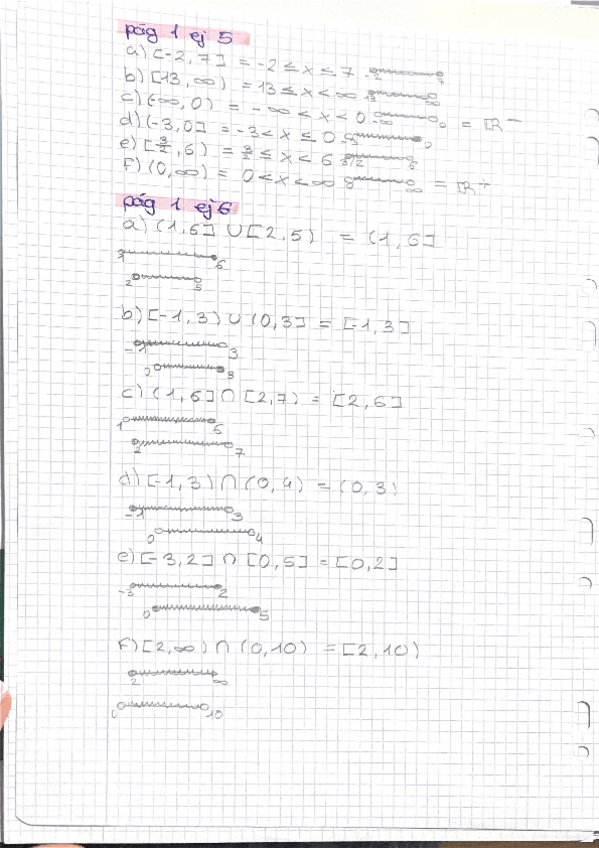 pág 1 ej 5
a) [-2,7] = -2 ≤ x ≤ 7 -2 7
b) [13, ∞) = 13 ≤ x < ∞ 13 ∞
c) (-∞, 0) = -∞ < x < 0 -∞ 0 = ℝ⁻
d) (-3,0] = -3 < x ≤ 0 -3 0
e) [3/2, 6) = 3/2 ≤ x < 6 3/2 6
f) (0, ∞) = 0 < x < ∞ 0 ∞ = ℝ⁺
pág 1 ej 6
a) (1,6] ∪ [2,5) = (1,6]
1 6
2 5
b) [-1,3) ∪ (0,3] = [-1,3]
-1 3
3
c) (1,6] ∩ [2,7) = [2,6]
1 6
2 7
d) [-1,3) ∩ (0,4) = (0,3)
-1 3
0 4
e) [-3,2] ∩ [0,5] = [0,2]
-3 2
0 5
f) [2,∞) ∩ (0,10) = [2,10)
2 ∞
0 10